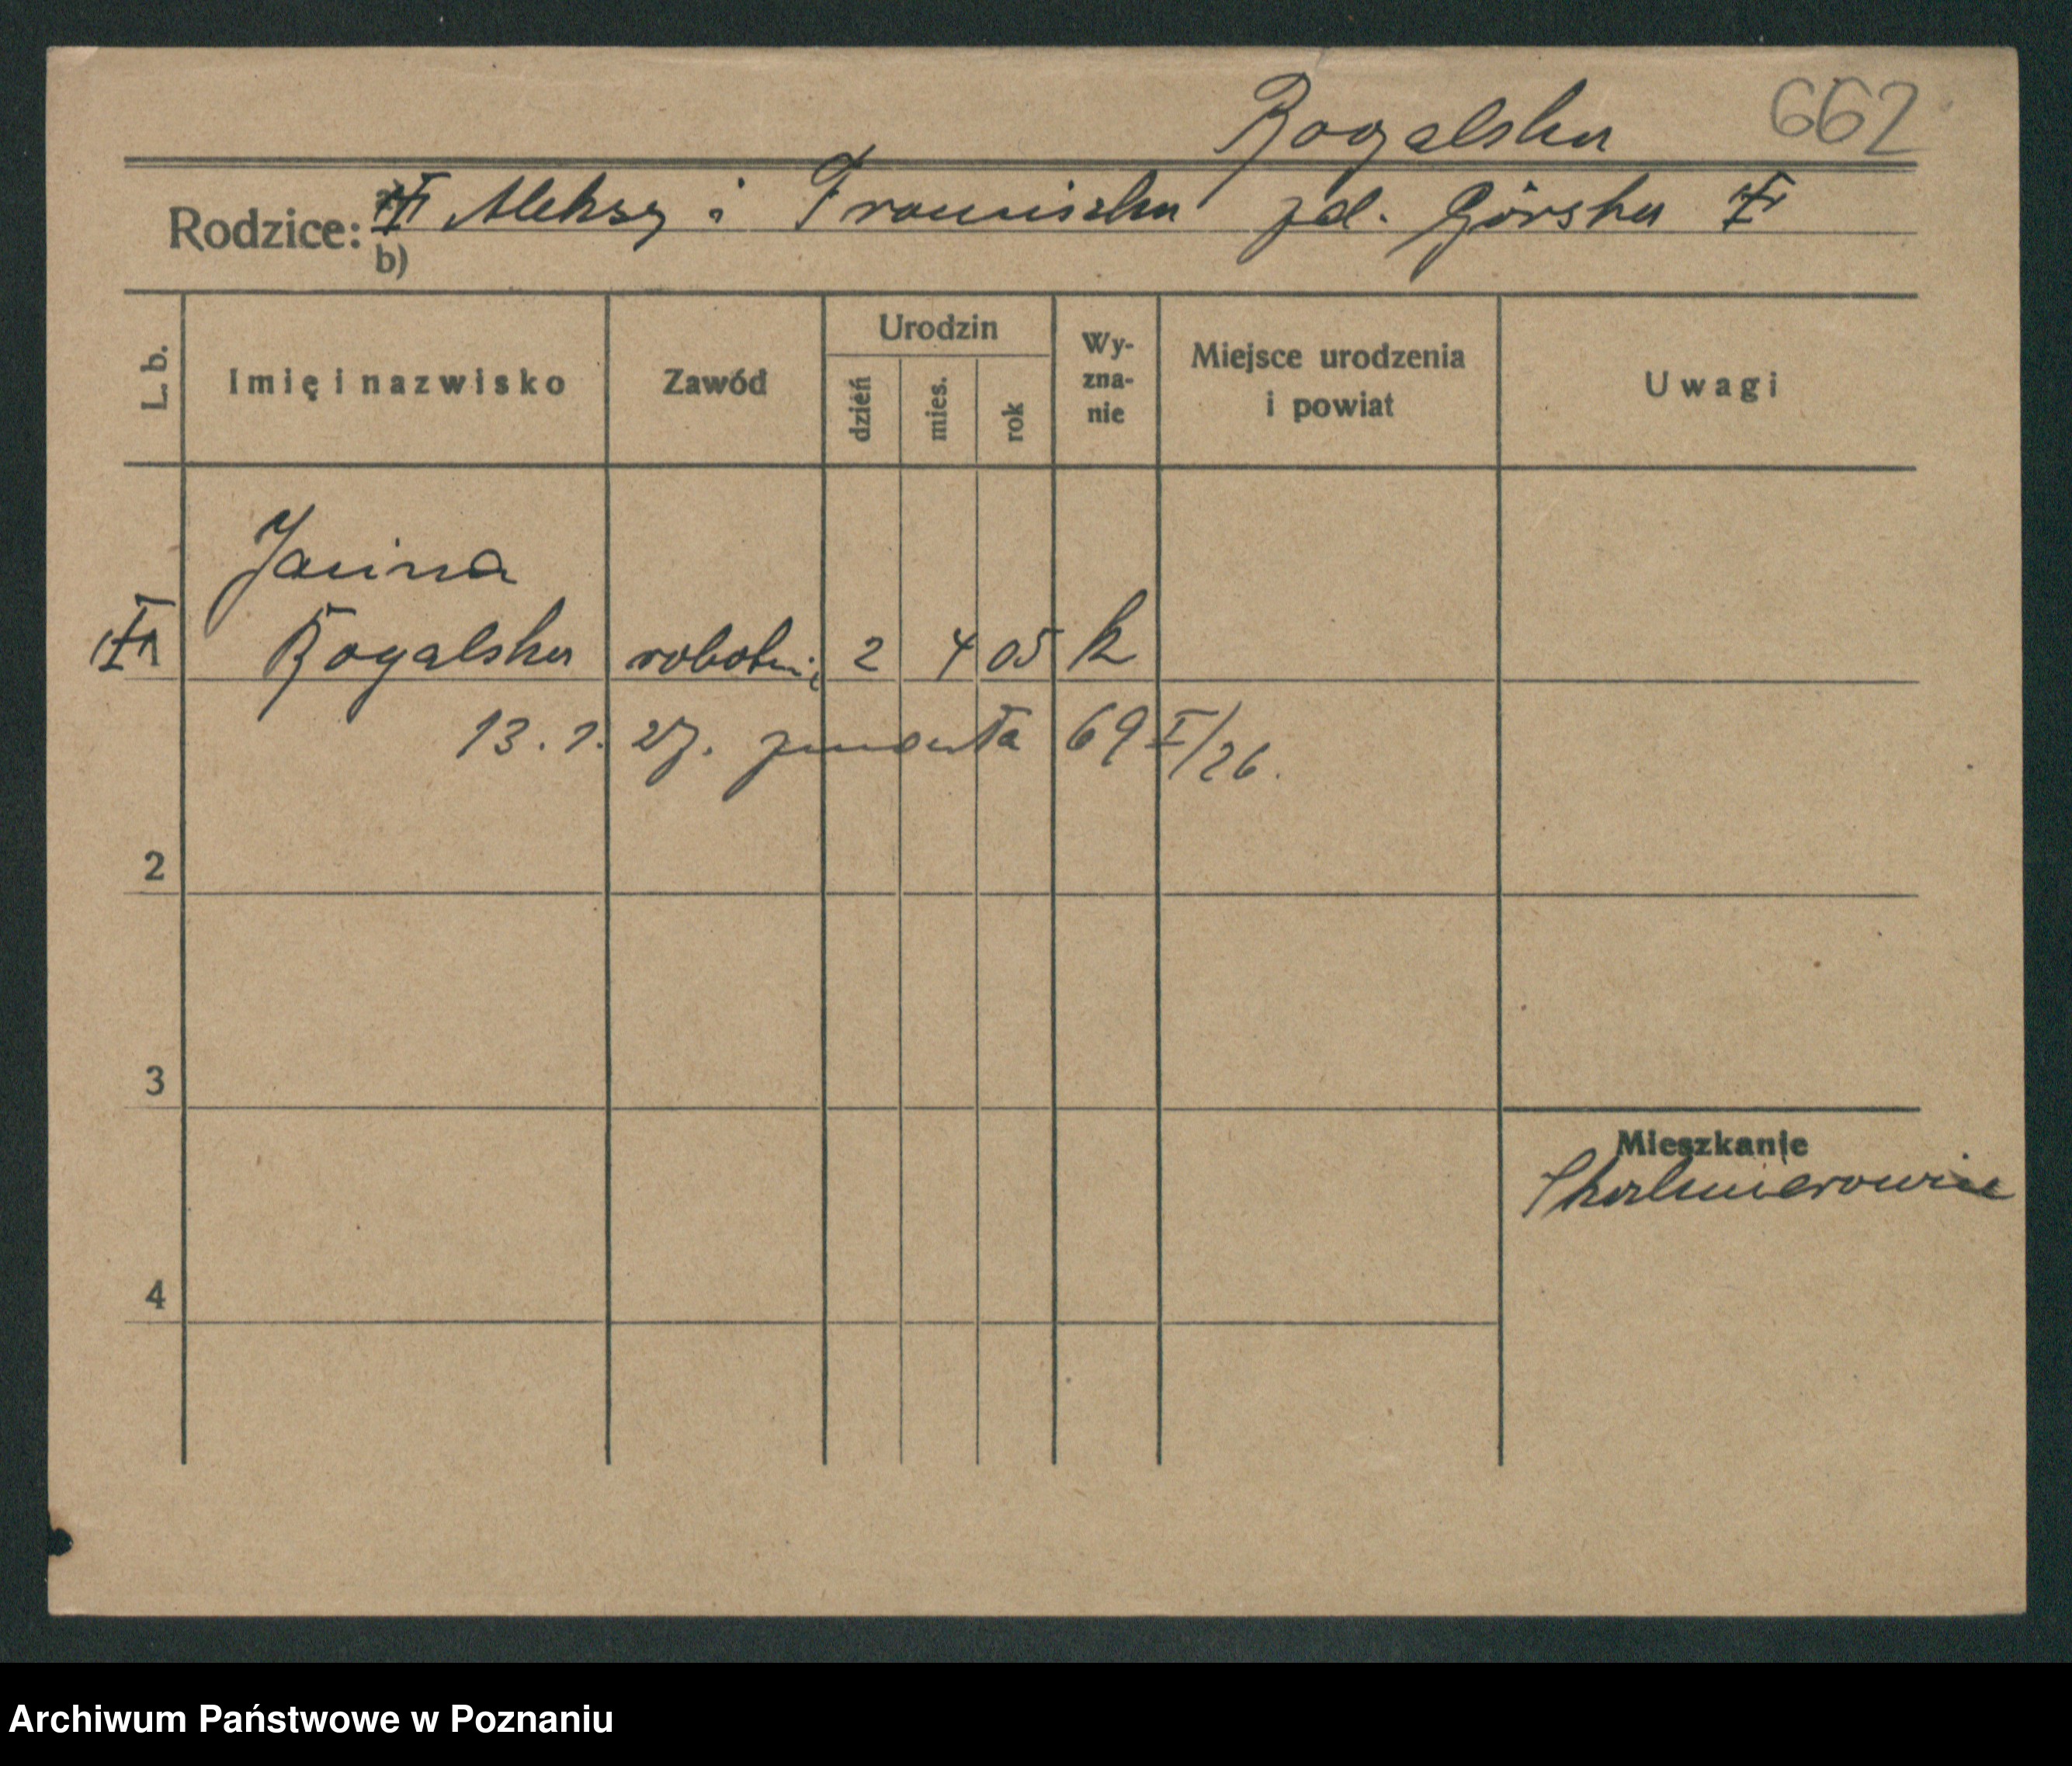 Rogalska 662
Rodzice: Aleksy i Franciszka zd. Górska
b)
L. b.
Imię i nazwisko
Zawód
Urodzin
dzień
mies.
rok
Wy-
zna-
nie
Miejsce urodzenia
i powiat
Uwagi
Janina
Rogalska robotni 2 4 05 k
13. 1. 27. zmarła 69 I/26.
2
3
Mieszkanie
4
Archiwum Państwowe w Poznaniu